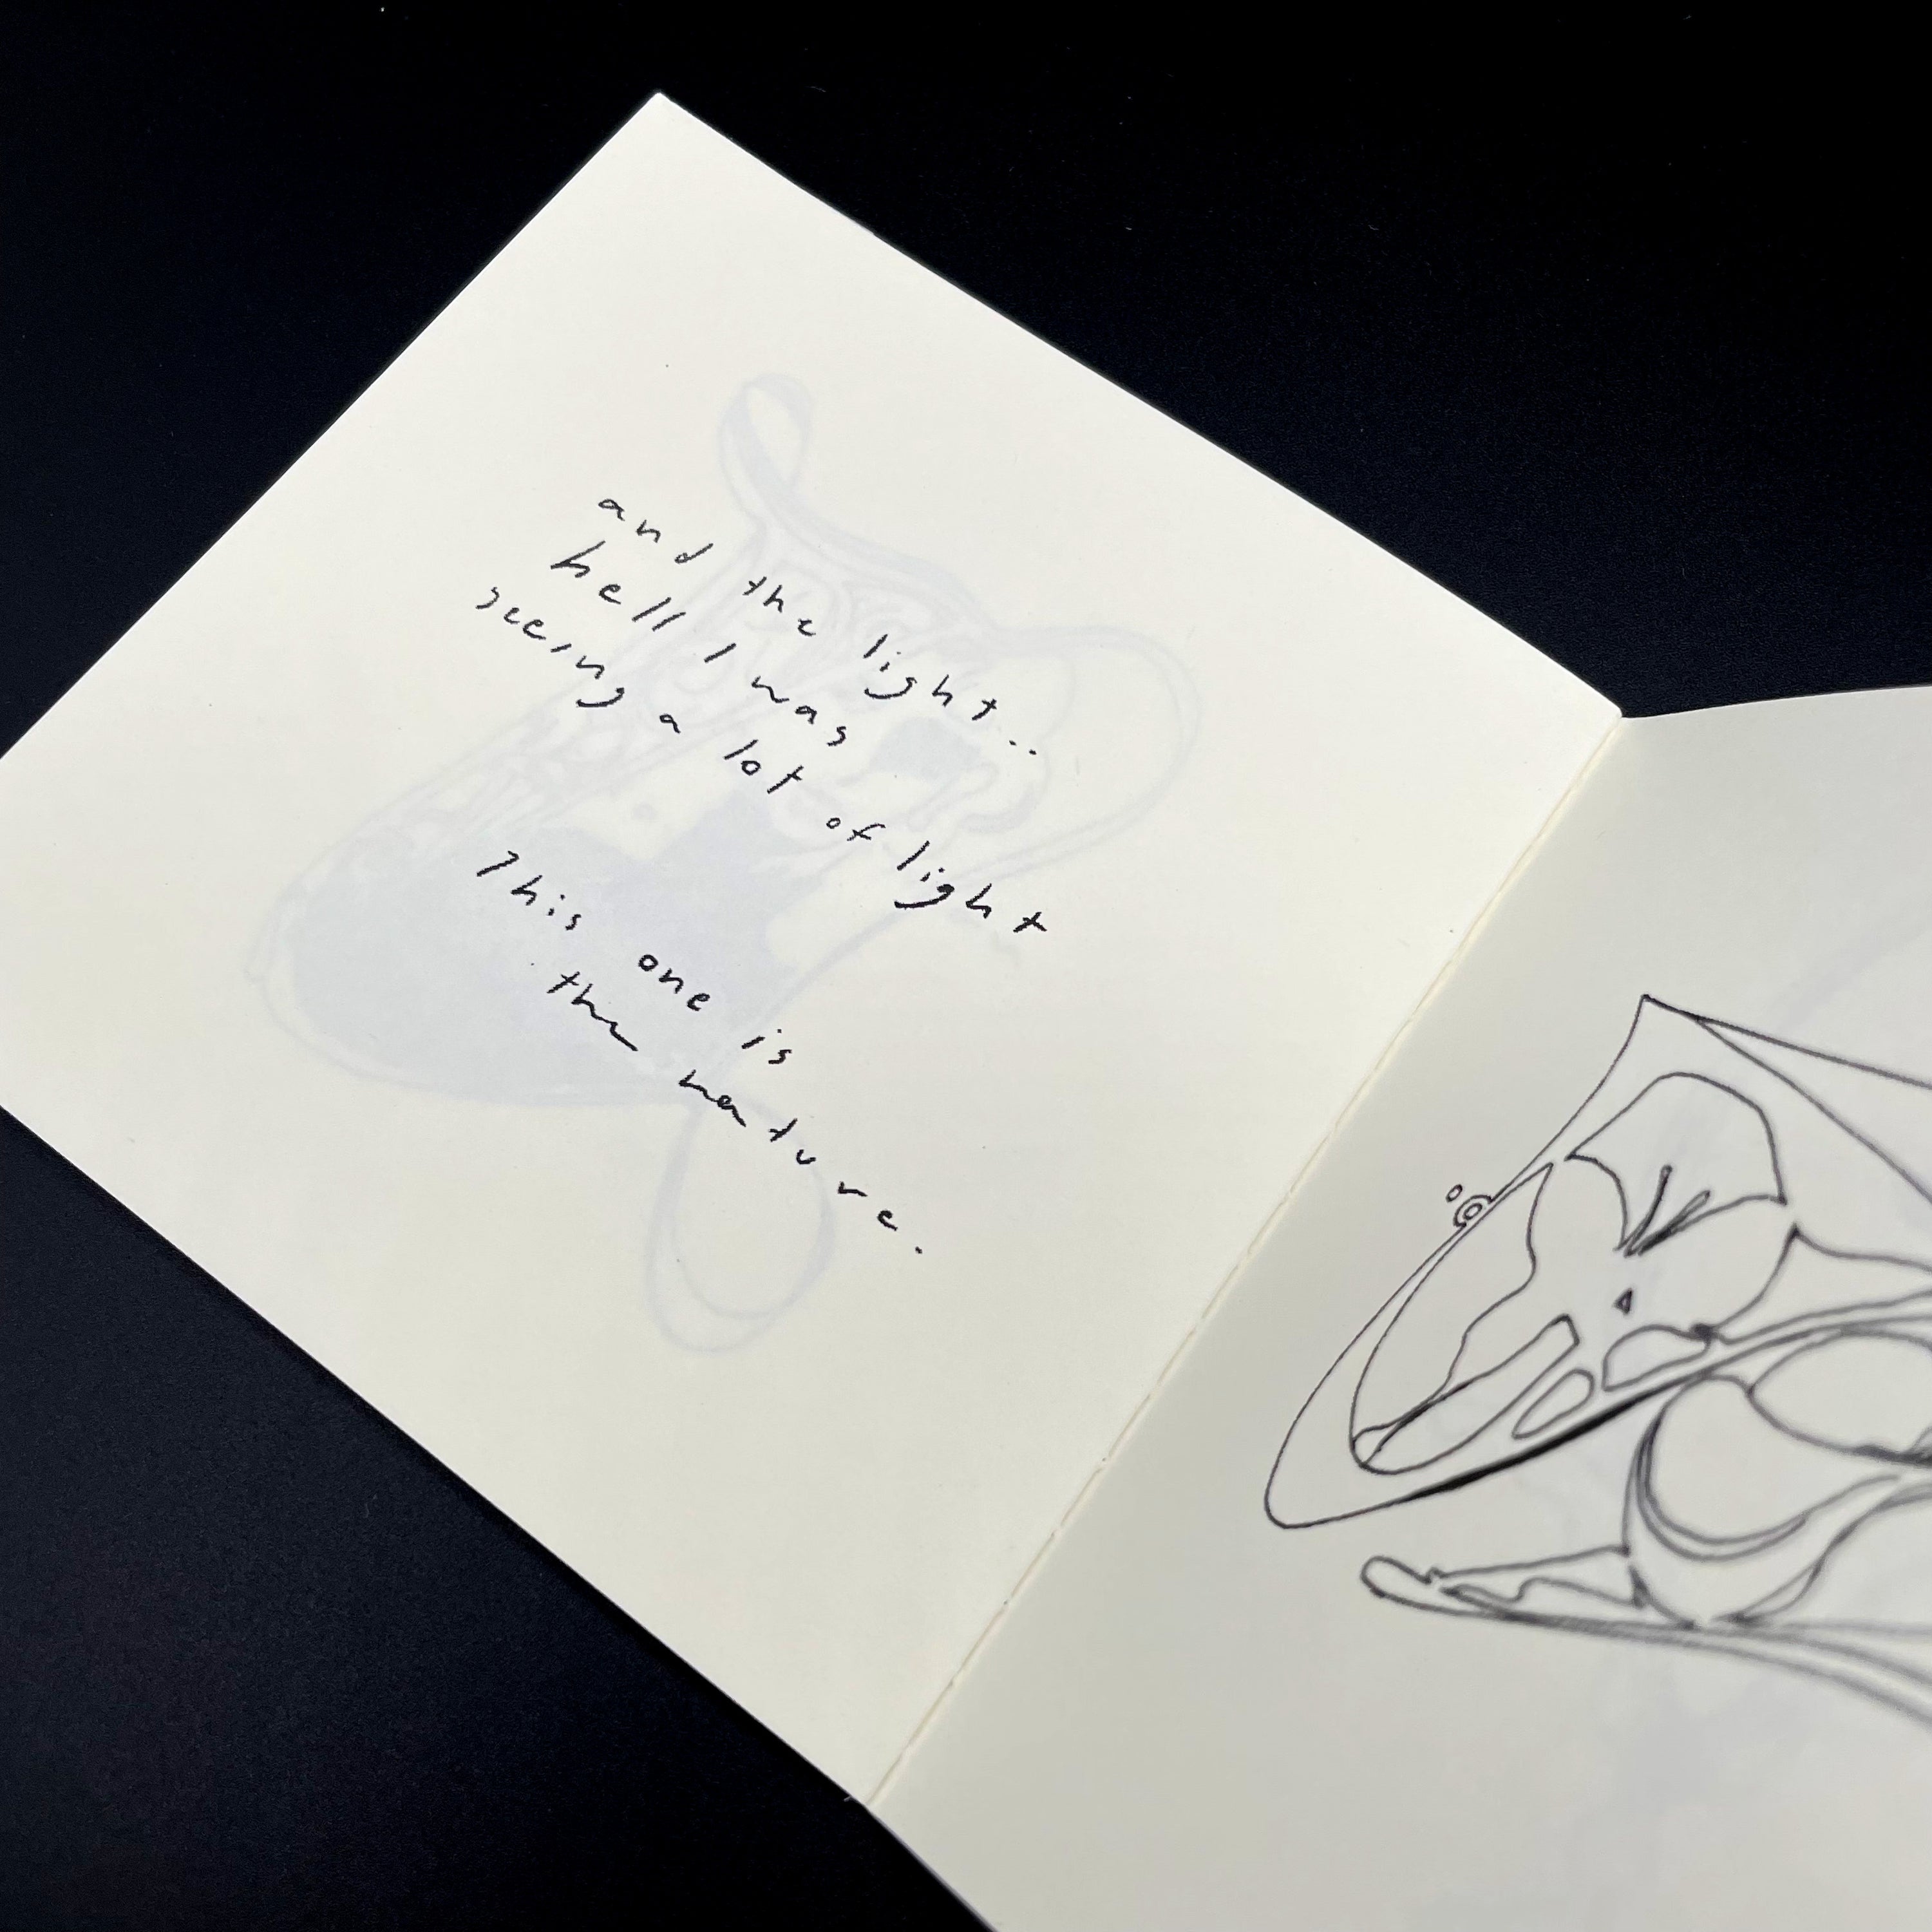 and the light...
hell I was
seeing a lot of light
This one is
the nature.